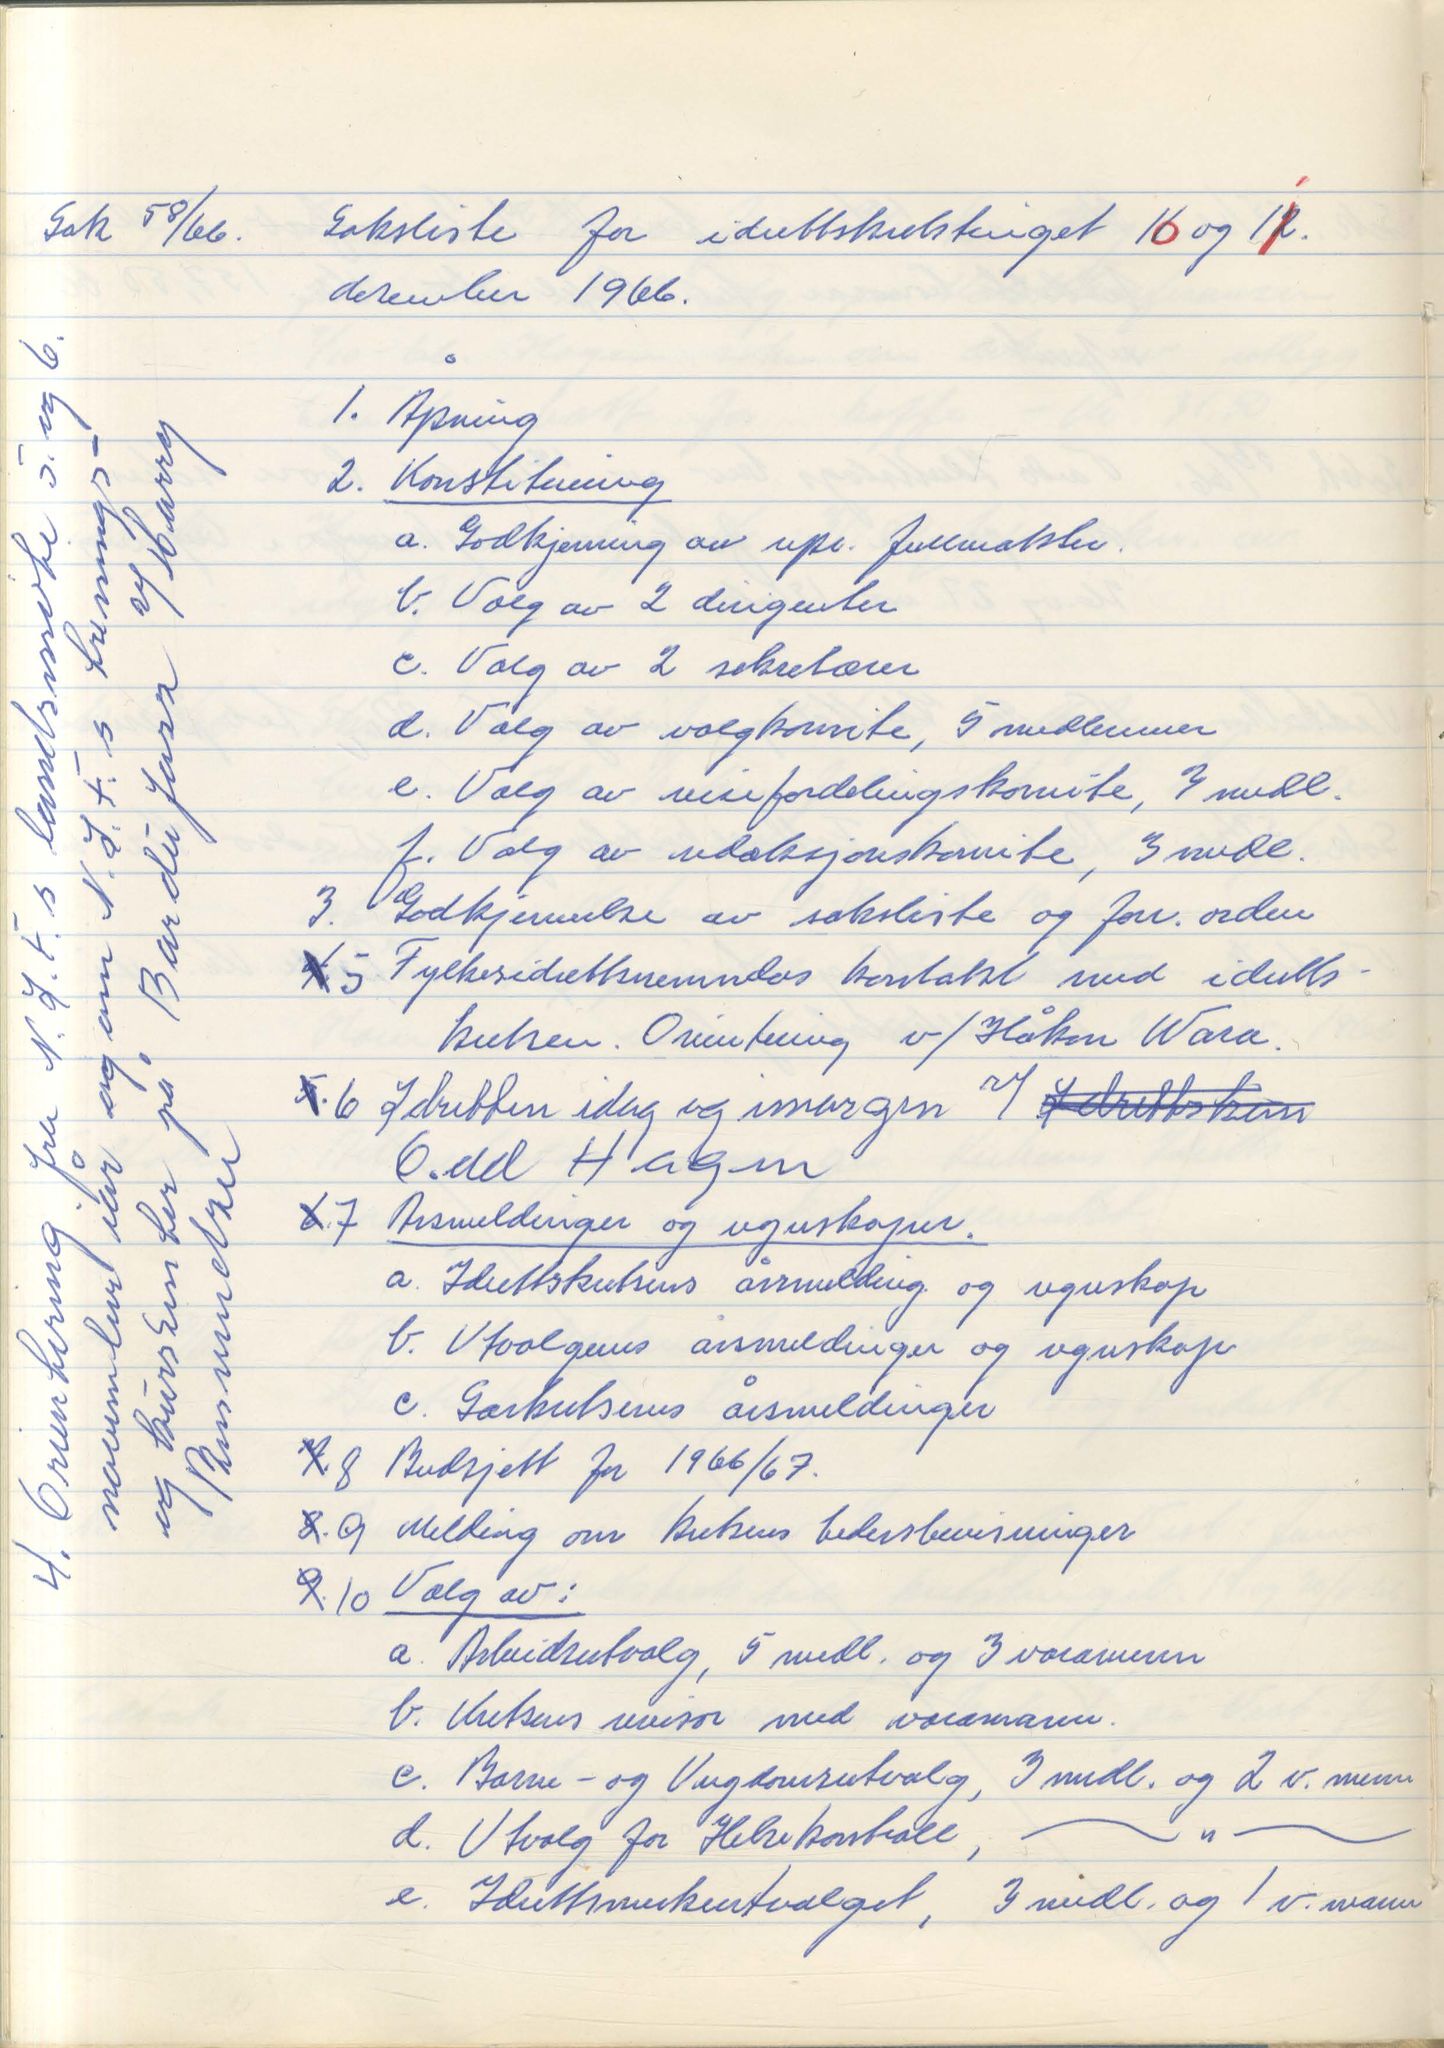 Sak 58/66. Saksliste for idrettskretstinget 10 og 11.
desember 1966.
1. Åpning
2. Konstituering
a. Godkjenning av repr. fullmakter.
b. Valg av 2 dirigenter
c. Valg av 2 sekretærer
d. Valg av valgkomite, 5 medlemmer
e. Valg av reisefordelingskomite, 3 medl.
f. Valg av redaksjonskomite, 3 medl.
3. Godkjennelse av saksliste og forr. orden
5 Fylkesidrettsnemndas kontakt med idretts-
kretsen. Orientering v/ Håkon Wara.
6 Idretten idag og imorgen v/ Idrettskrins
Odd Hagen
7 Årsmeldinger og regnskaper.
a. Idrettskretsens årsmelding og regnskap
b. Utvalgenes årsmeldinger og regnskap
c. Særkretsenes årsmeldinger
8 Budsjett for 1966/67.
9 Melding om kretsens hedersbevisninger
10 Valg av:
a. Arbeidsutvalg, 5 medl. og 3 varamenn
b. Kretsens revisor med varamann.
c. Barne- og Ungdomsutvalg, 3 medl. og 2 v. menn
d. Utvalg for Helsekontroll, — " —
e. Idrettsmerkeutvalget, 3 medl. og 1 v. mann
4. Orientering fra N.I.F.s landsmøte 5. og 6.
november iår og om N.I.F.s trenings-
og kurssenter på Bardu Jarn og Harry